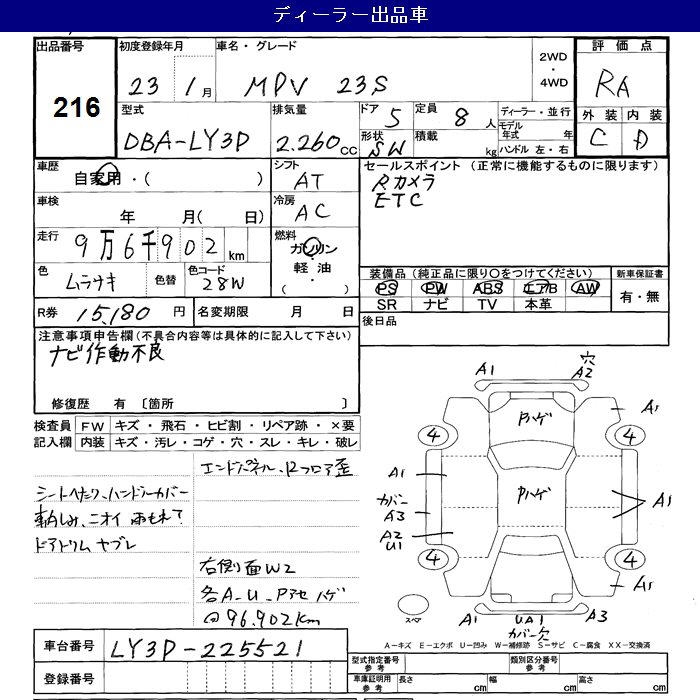 ディーラー出品車
出品番号
216
初度登録年月
23 1月
車名・グレード
MPV 23S
2WD
・
4WD
評価点
RA
外装 内装
C D
型式
DBA-LY3P
排気量
2.260cc
ドア
5
定員
8人
形状
SW
積載
kg
ディーラー・並行
モデル年式 年
ハンドル 左・右
車歴
自家用・( )
シフト
AT
セールスポイント (正常に機能するものに限ります)
Rカメラ
ETC
車検
年 月( 日)
冷房
AC
走行
9万6千902km
燃料
ガソリン
・
軽油
( )
色
ムラサキ
色替
色コード
28W
装備品(純正品に限り○をつけてください)
PS PW ABS エアB AW
SR ナビ TV 本革
新車保証書
有・無
R券
15,180円
名変期限 月 日
後日品
注意事項申告欄(不具合内容等は具体的に記入して下さい)
ナビ作動不良
修復歴 有〔箇所 〕
検査員記入欄
FW キズ・飛石・ヒビ割・リペア跡・×要
内装 キズ・汚レ・コゲ・穴・スレ・キレ・破レ
エンドパネル、Rフロア歪
シートヘタリ、ハンドルカバー
車内しみ、ニオイ 雨もれ?
ドアトリム ヤブレ
右側面W2
各A-U-Pアセハゲ
@96.902km
A1
穴
A2
Pハゲ
A1
4
4
A1
Pハゲ
カバー
A3
A1
A2
U1
4
4
A1
スペア
A1
UA1
A3
カバー穴
A-キズ E-エクボ U-凹み W-補修跡 S-サビ C-腐食 XX-交換済
車台番号
LY3P-225521
登録番号
型式指定番号
参考
類別区分番号
参考
車庫証明用
参考
長さ cm
幅 cm
高さ cm